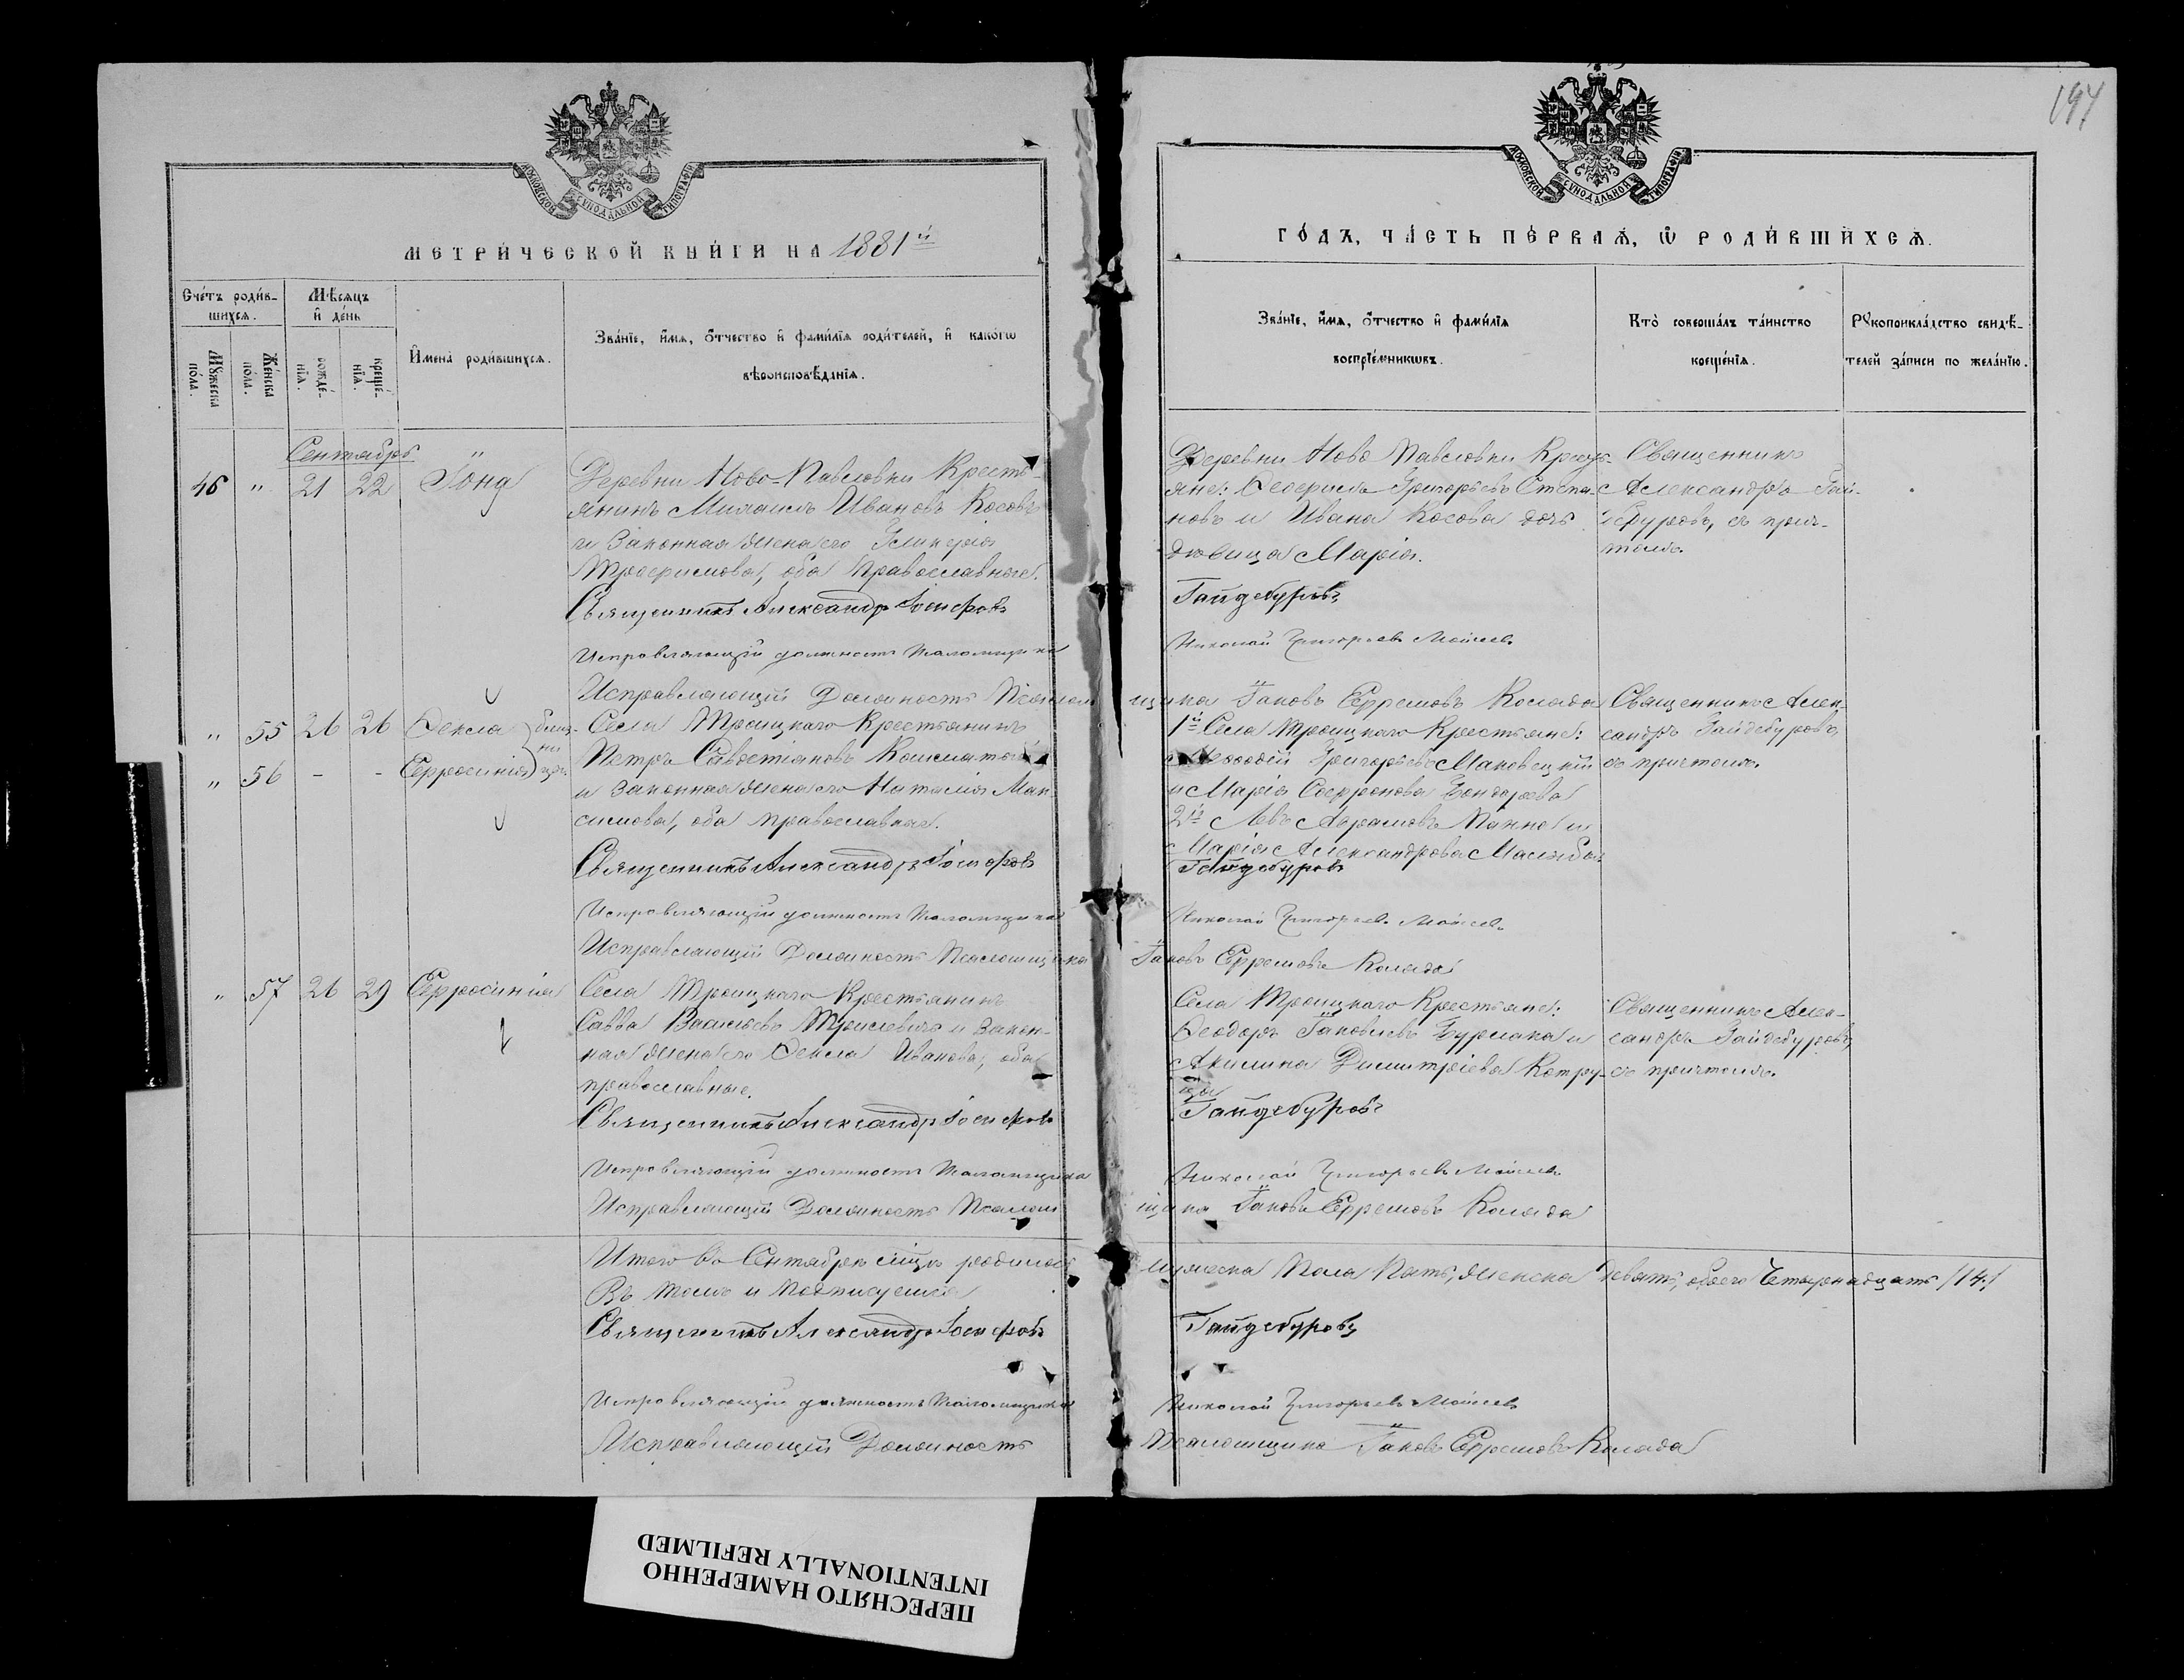 197
МОСКОВСКОЙ СѴНОДАЛЬНОЙ ТИПОГРАФІИ
МОСКОВСКОЙ СѴНОДАЛЬНОЙ ТИПОГРАФІИ
МЕТРИ́ЧЕСКОЙ КНИ́ГИ НА 1881й
ГО́ДЪ, ЧА́СТЬ ПЕ́РВАѦ, Ѡ РОДИ́ВШИХСѦ.
Сче́тъ роди́в-
шихсѧ.
Мꙋжеска по́ла.
Же́нска по́ла.
Мѣ́сѧцъ
и҆ де́нь
рожде́-
нїѧ.
креще́-
нїѧ.
И҆мена̀ роди́вшихсѧ.
Зва́нїе, и҆́мѧ, ѻ҆́тчество и҆ фами́лїѧ роди́телей, и҆ како́гѡ
вѣроисповѣ́данїѧ.
Зва́нїе, и҆́мѧ, ѻ҆́тчество и҆ фами́лїѧ
воспрїе́мникѡвъ.
Кто̀ соверша́лъ та́инство
креще́нїѧ.
Рꙋкоприкла́дство свидѣ́-
телей за́писи по жела́нїю.
Сентябрь
46 " 21 22 Іона
Деревни Ново-Павловки Кресть-
янинъ Михаилъ Ивановъ Косовъ
и Законная жена его Гликерія
Трофимова, оба православные.
Священникъ Александръ Іосифовъ
Исправляющій должность Псаломщика
Исправляющій Должность Псалом
Деревни Ново Павловки Кресть-
яне: Григорьевъ Степа-
новъ и Ивана Косова дочь
дѣвица Марія.
Гайдебуровъ
Николай Григорьевъ Моисеев
щика Іаковъ Ефремовъ Коляда
Священникъ
Александръ Гай-
дебуровъ, съ прич-
томъ.
" 55 26 26 Ѳекла близ-
" 56 - - Евфросинія ни цы.
Села Троицкаго Крестьянинъ
Петръ Савостіановъ
и Законная жена его Наталія Мак-
симова, оба православные.
Священникъ Александръ Іосифовъ
Исправляющій должность Псаломщика
Исправляющій Должность Псаломщика
1й Села Троицкаго Крестьяне:
Меѳодій Григорьевъ Маковецкій
и Марія Софронова Бондарева
2й Левъ Абрамовъ и
Марія Александрова
Гайдебуровъ
Николай Григорьевъ Моисеев
Іаковъ Ефремовъ Коляда
Священникъ Алек-
сандръ Гайдебуровъ,
съ причтомъ.
" 57 26 29 Евфросинія
Села Троицкаго Крестьянинъ
Савва Васильевъ и Закон-
ная жена его Ѳекла Иванова, оба
православные.
Священникъ Александръ Іосифовъ
Исправляющій должность Псаломщика
Исправляющій Должность Псалом
Села Троицкаго Крестьяне:
Ѳеодоръ Іаковлевъ Бурлака и
Акилина Димитріева
Гайдебуровъ
Николай Григорьевъ Моисеев
щика Іаковъ Ефремовъ Коляда
Священникъ Алек-
сандръ Гайдебуровъ,
съ причтомъ.
Итого въ Сентябрѣ мцѣ родилось мужеска пола Пять, женска девять, обоего Четырнадцать /14./
Въ томъ и подписуемся
Священникъ Александръ Іосифовъ Гайдебуровъ
Исправляющій должность Псаломщика Николай Григорьевъ Моисеев
Исправляющій Должность Псаломщика Іаковъ Ефремовъ Коляда
ПЕРЕСНЯТО НАМЕРЕННО
INTENTIONALLY REFILMED